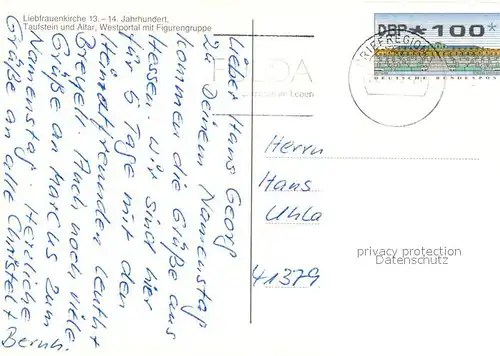 Liebfrauenkirche 13. - 14. Jahrhundert,
Taufstein und Altar, Westportal mit Figurengruppe
Lieber Hans Georg
Zu Deinem Namenstag
kommen die Grüße aus
Hessen. Wir sind hier
für 5 Tage mit den
Heimatfreunden Leuth +
Breyell. Auch noch viele
Grüße an Marcus zum
Namenstag. Herzliche
Grüße an alle Christel +
Bernh.
DBP * 100 *
DEUTSCHE BUNDESPOST
BRIEFREGION
Leben
Herrn
Hans
Uhla
41379
privacy protection
Datenschutz